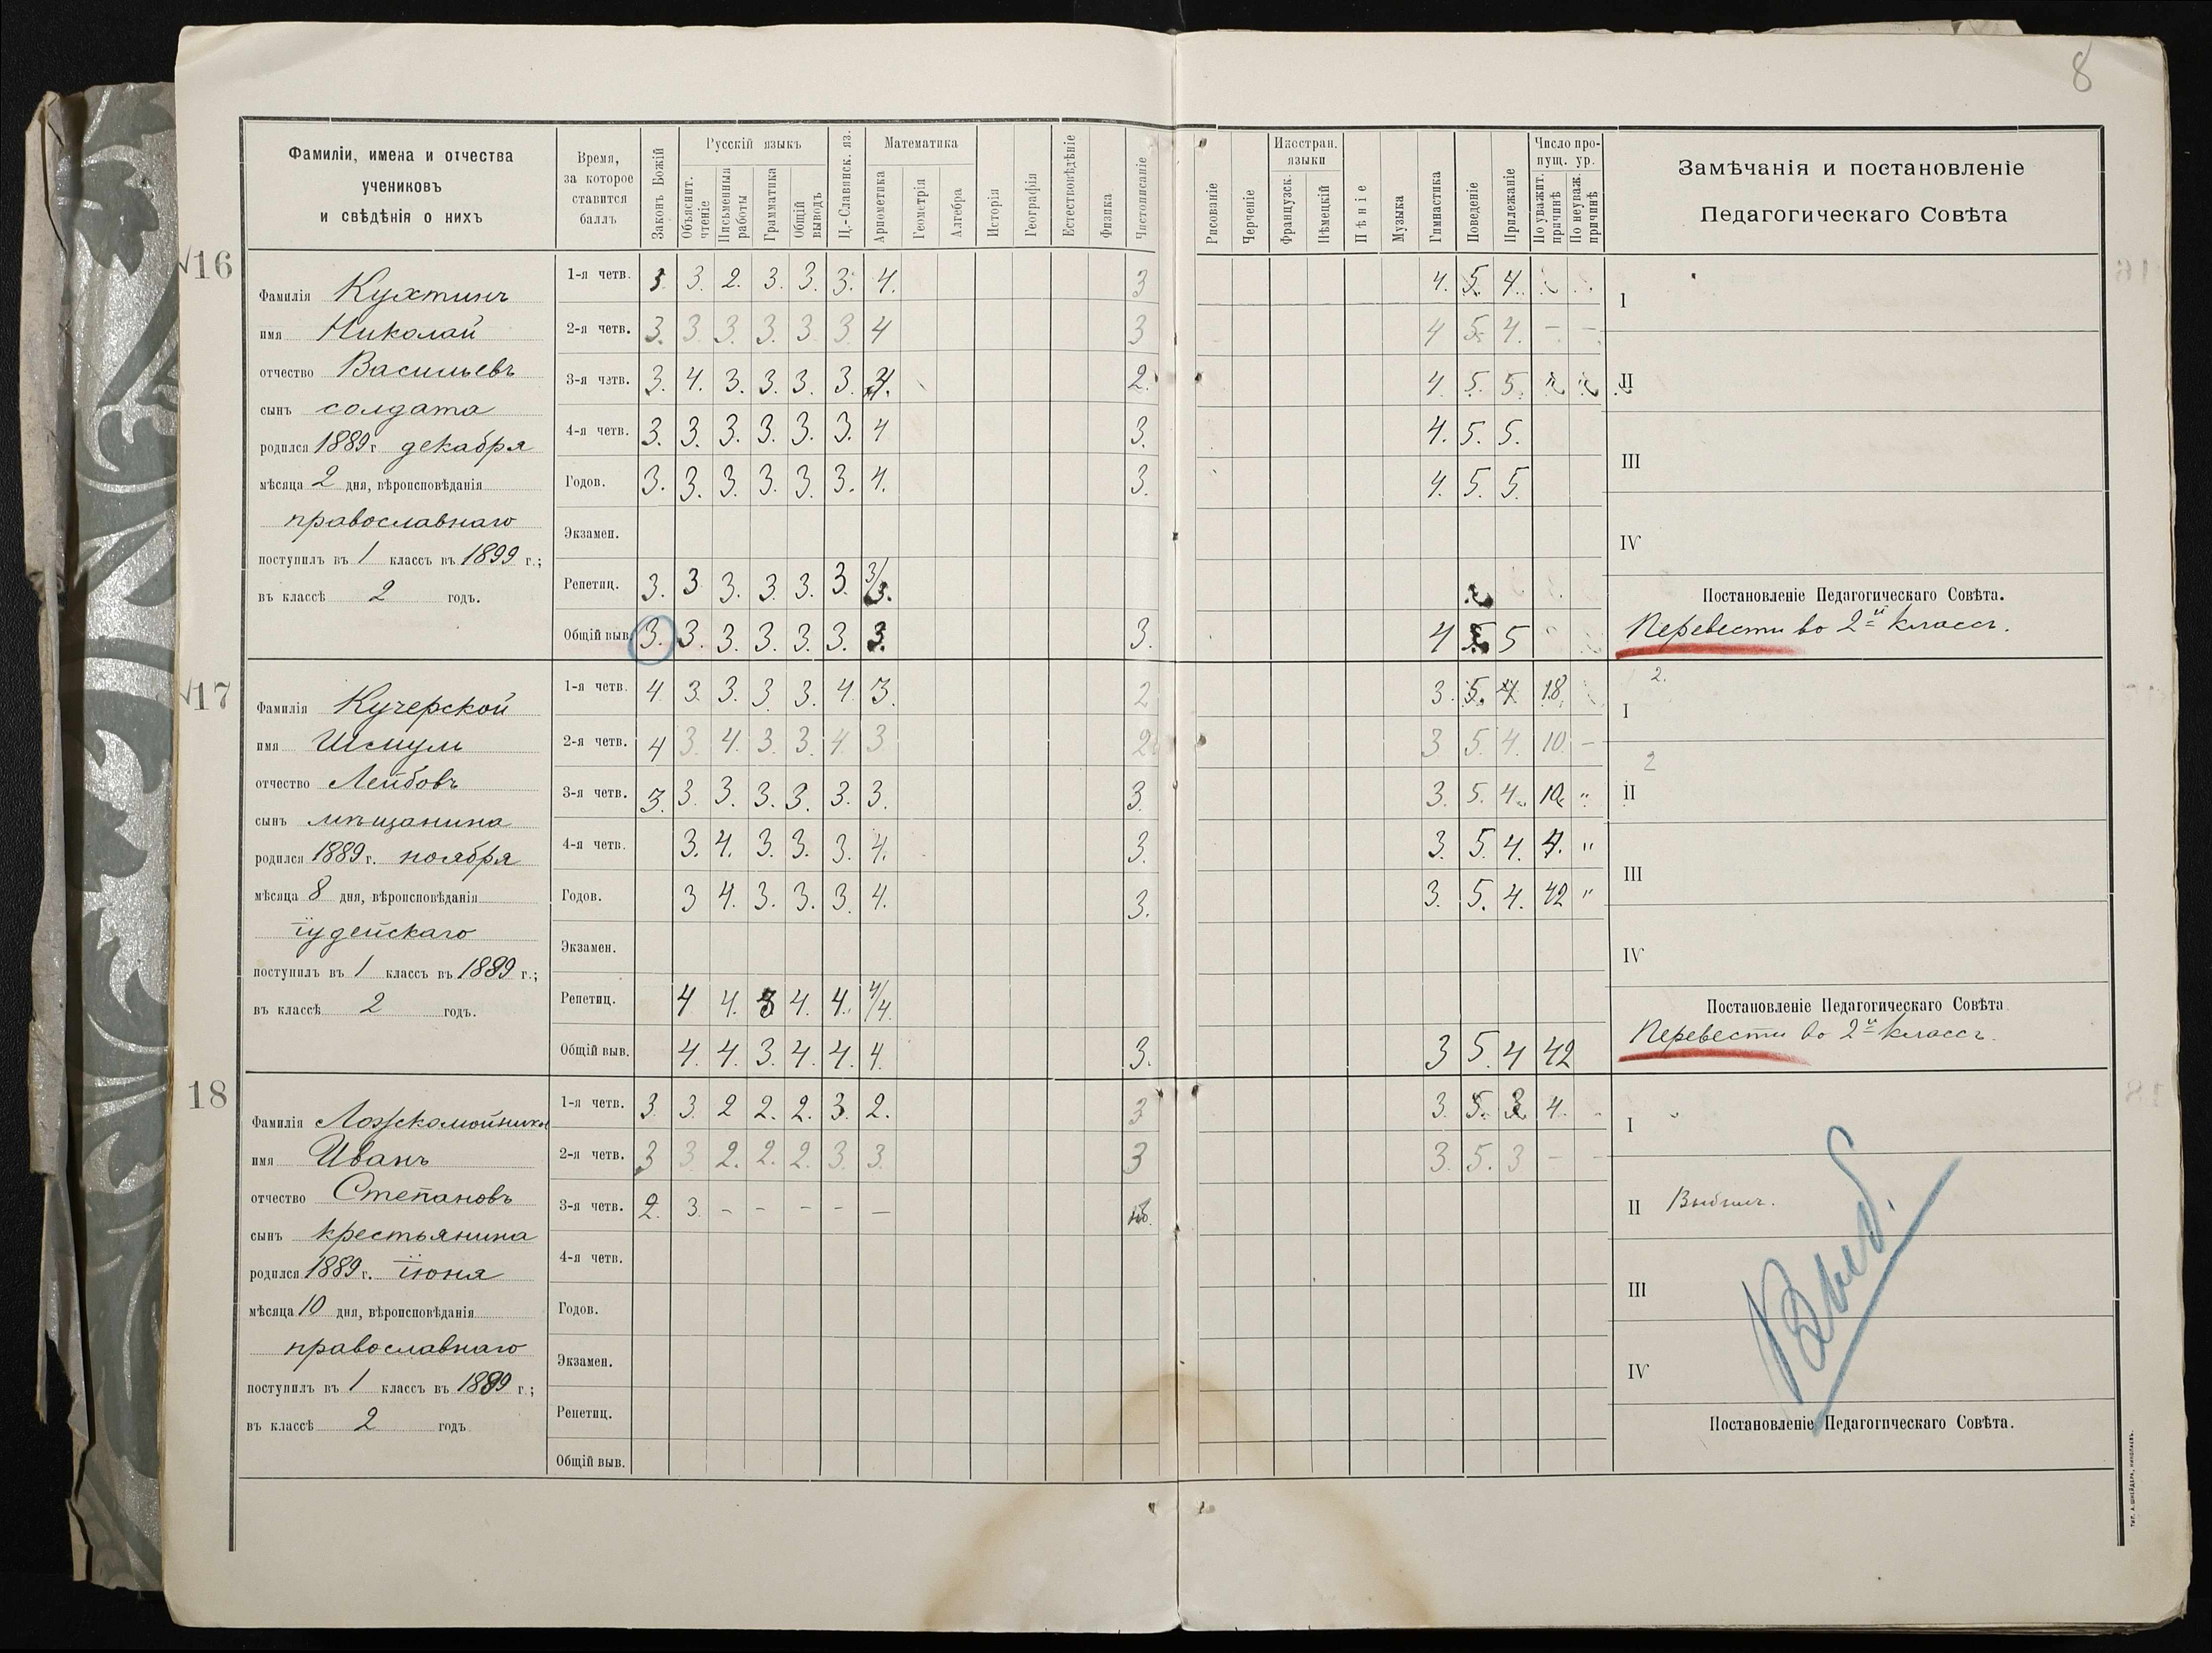 8
Фамиліи, имена и отчества
учениковъ
и свѣдѣнія о нихъ
Время,
за которое
ставится
баллъ
Законъ Божій
Русскій языкъ
Объяснит. чтеніе
Письменныя работы
Грамматика
Общій выводъ
Ц.-Славянск. яз.
Математика
Ариѳметика
Геометрія
Алгебра
Исторія
Географія
Естествовѣдѣніе
Физика
Чистописаніе
Рисованіе
Черченіе
Иностран. языки
Французск.
Нѣмецкій
Пѣніе
Музыка
Гимнастика
Поведеніе
Прилежаніе
Число пропущ. ур.
По уважит. причинѣ
По неуваж. причинѣ
Замѣчанія и постановленіе
Педагогическаго Совѣта
16
Фамилія Кухтинъ
имя Николай
отчество Васильевъ
сынъ солдата
родился 1889 г. декабря
мѣсяца 2 дня, вѣроисповѣданія
православнаго
поступилъ въ 1 классъ въ 1899 г.;
въ классѣ 2 годъ.
1-я четв. 3. 3. 2. 3. 3. 3. 4. 3 4. 5. 4.
2-я четв. 3. 3 3. 3. 3 3 4 3 4 5. 4. — —
3-я четв. 3. 4. 3. 3. 3. 3. 4. 2. 4. 5. 5.
4-я четв. 3. 3. 3. 3. 3. 3. 4 3. 4. 5. 5.
Годов. 3. 3. 3. 3. 3. 3. 4. 3. 4. 5. 5.
Экзамен.
Репетиц. 3. 3 3. 3. 3. 3. 3/3.
Общій выв. 3. 3. 3. 3. 3. 3. 3. 3. 4 5. 5
I
II
III
IV
Постановленіе Педагогическаго Совѣта.
Перевести во 2й классъ.
17
Фамилія Кучерской
имя Шмуль
отчество Лейбовъ
сынъ мѣщанина
родился 1889 г. ноября
мѣсяца 8 дня, вѣроисповѣданія
іудейскаго
поступилъ въ 1 классъ въ 1899 г.;
въ классѣ 2 годъ.
1-я четв. 4. 3. 3. 3. 3. 4. 3. 2 3. 5. 4 18.
2-я четв. 4 3. 4. 3. 3. 4. 3 2 3 5. 4. 10. —
3-я четв. 3. 3. 3. 3. 3. 3. 3. 3. 3. 5. 4. 10. "
4-я четв. 3. 4. 3. 3. 3. 4. 3. 3. 5. 4. 4. "
Годов. 3 4. 3. 3. 3. 4. 3. 3. 5. 4. 42 "
Экзамен.
Репетиц. 4 4. 3 4. 4. 4/4.
Общій выв. 4. 4. 3. 4. 4. 4. 3. 3 5. 4 42
2.
I
2
II
III
IV
Постановленіе Педагогическаго Совѣта.
Перевести во 2й классъ.
18
Фамилія Ложкомойниковъ
имя Иванъ
отчество Степановъ
сынъ крестьянина
родился 1889 г. іюня
мѣсяца 10 дня, вѣроисповѣданія
православнаго
поступилъ въ 1 классъ въ 1899 г.;
въ классѣ 2 годъ
1-я четв. 3. 3. 2 2. 2. 3. 2. 3 3. 5. 3. 4.
2-я четв. 3 3 2. 2. 2. 3. 3. 3 3. 5. 3 — —
3-я четв. 2. 3. – – – – —
4-я четв.
Годов.
Экзамен.
Репетиц.
Общій выв.
I
II Выбылъ.
III
IV
Выб.
Постановленіе Педагогическаго Совѣта.
ТИП. А. ШНЕЙДЕРА, НИКОЛАЕВЪ.